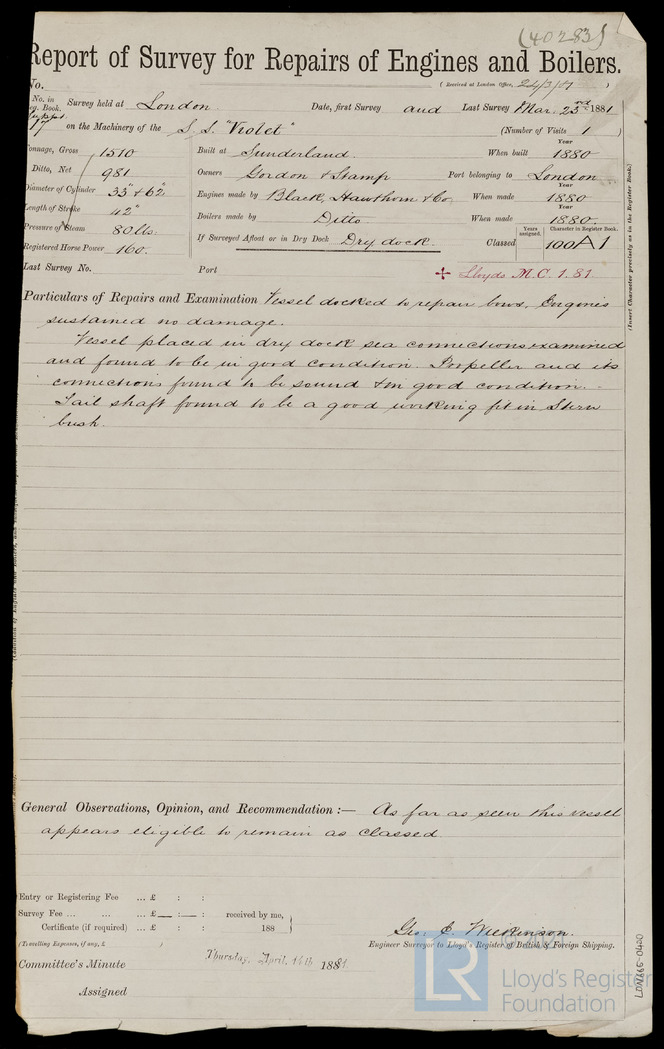 (40283)
Report of Survey for Repairs of Engines and Boilers.
No. (Received at London Office, 24/3/81
No. in Reg. Book. Survey held at London Date, first Survey and Last Survey Mar. 23rd 1881
on the Machinery of the S.S. "Violet" (Number of Visits 1 )
Tonnage, Gross 1510 Built at Sunderland. When built Year 1880
Ditto, Net 981 Owners Gordon & Stamp Port belonging to London
Diameter of Cylinder 33" & 62" Engines made by Black, Hawthorn & Co When made Year 1880
Length of Stroke 42" Boilers made by Ditto When made Year 1880.
Pressure of Steam 80 lbs. If Surveyed Afloat or in Dry Dock Dry dock. Classed Years assigned. Character in Register Book. 100A1
Registered Horse Power 160.
Last Survey No. Port + Lloyds M.C. 1.81.
(Insert Character precisely as in the Register Book)
Particulars of Repairs and Examination Vessel docked to repair bows. Engines
sustained no damage.
Vessel placed in dry dock sea connections examined
and found to be in good condition. Propeller and its
connections found to be sound & in good condition. -
Tail shaft found to be a good working fit in Stern
bush.
General Observations, Opinion, and Recommendation :— As far as seen this vessel
appears eligible to remain as classed
Entry or Registering Fee ... £ : :
Survey Fee ... ... ... £ — : — : received by me,
Certificate (if required) ... £ : : 188
(Travelling Expenses, if any, £ )
Geo. C. Wilkinson.
Engineer Surveyor to Lloyd's Register of British & Foreign Shipping.
Committee's Minute Thursday, April, 1881.
Assigned
LR
Lloyd's Register
Foundation
LON665-0400